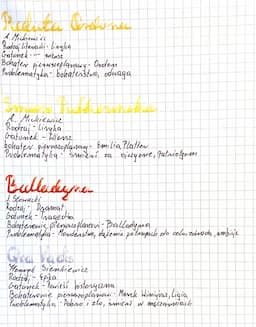 Reduta Ordona
A. Mickiewicz
Rodzaj literacki - liryka
Gatunek - wiersz
Bohater pierwszoplanowy - Ordon
Problematyka - bohaterstwo, odwaga
Śmierć Pułkownika
A. Mickiewicz
Rodzaj - liryka
Gatunek - Wiersz
Bohater pierwszoplanowy - Emilia Plater
Problematyka - Śmierć za ojczyznę, patriotyzm
Balladyna
J. Słowacki
Rodzaj - Dramat
Gatunek - tragedia
Bohaterowie pierwszoplanowi - Balladyna
Problematyka - Morderstwa, dążenie po trupach do celu, zdrada, ambicja
Quo Vadis
Henryk Sienkiewicz
Rodzaj - Epika
Gatunek - Powieść historyczna
Bohaterowie pierwszoplanowi - Marek Winicjusz, Ligia
Problematyka - Dobro i zło, śmierć w męczarniach